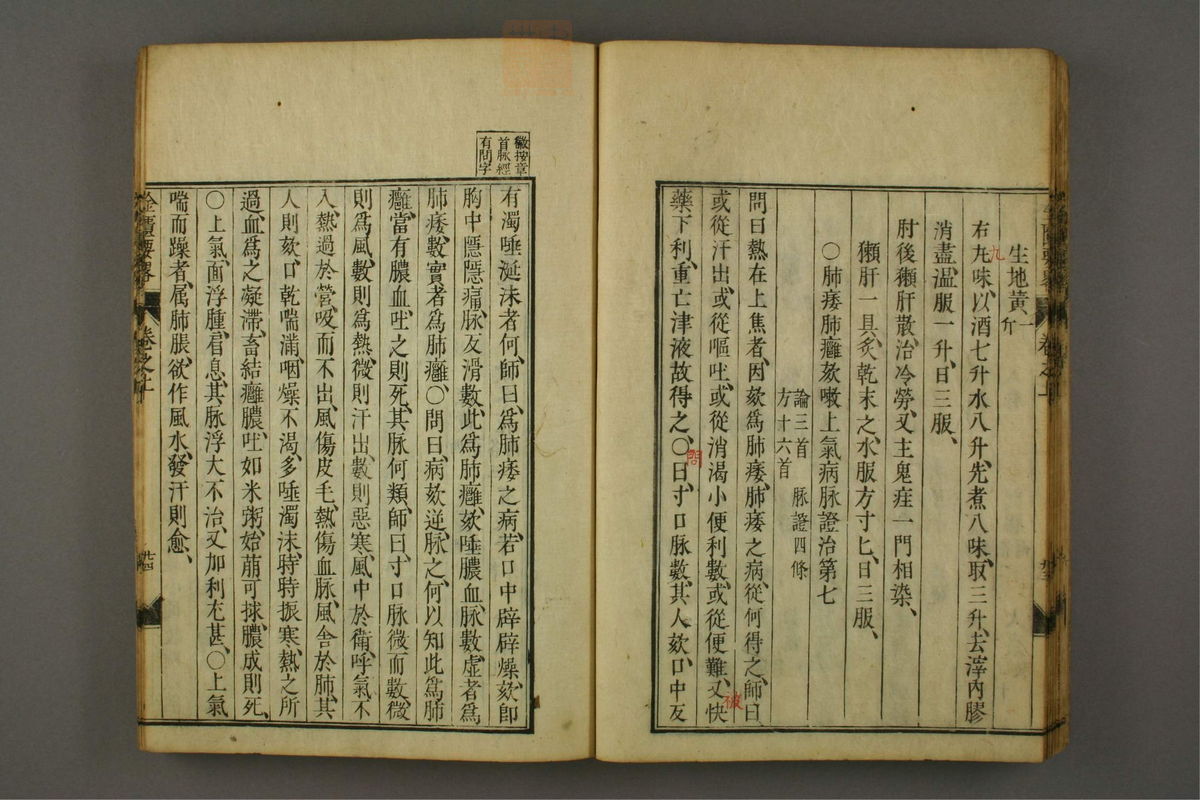 生地黄一斤
右九味以酒七升水八升先煮八味取三升去滓內膠
九
消盡温服一升日三服、
肘後獺肝散、治冷勞、又主鬼疰一門相染、
獺肝一具炙乾末之、水服方寸匕、日三服、
○肺痿肺癰欬嗽上氣病脉證治第七
論三首　脉證四條
方十六首
問曰、熱在上焦者、因欬爲肺痿、肺痿之病、從何得之、師曰
或從汗出、或從嘔吐、或從消渴小便利數、或從便難、又快
被
藥下利、重亡津液故得之、○曰、寸口脉數、其人欬口中反
問
徽按章
首脉經
有問字
有濁唾涎沫者何、師曰、爲肺痿之病、若口中辟辟燥、欬、卽
胸中隱隱痛、脉反滑數、此爲肺癰、欬唾膿血、脉數、虛者爲
肺痿、數實者爲肺癰、○問曰、病欬逆、脉之、何以知此爲肺
癰、當有膿血、吐之則死、其脉何類、師曰、寸口脉微而數、微
則爲風、數則爲熱、微則汗出、數則惡寒、風中於衛、呼氣不
入、熱過於營、吸而不出、風傷皮毛、熱傷血脉、風舍於肺、其
人則欬、口乾喘滿、咽燥不渴、多唾濁沫、時時振寒、熱之所
過、血爲之凝滯、畜結癰膿、吐如米粥、始萠可捄、膿成則死、
○上氣、面浮腫、肩息、其脉浮大不治、又加利尤甚、○上氣
喘而躁者、属肺脹、欲作風水、發汗則愈、
金匱要略　卷之上　廿四